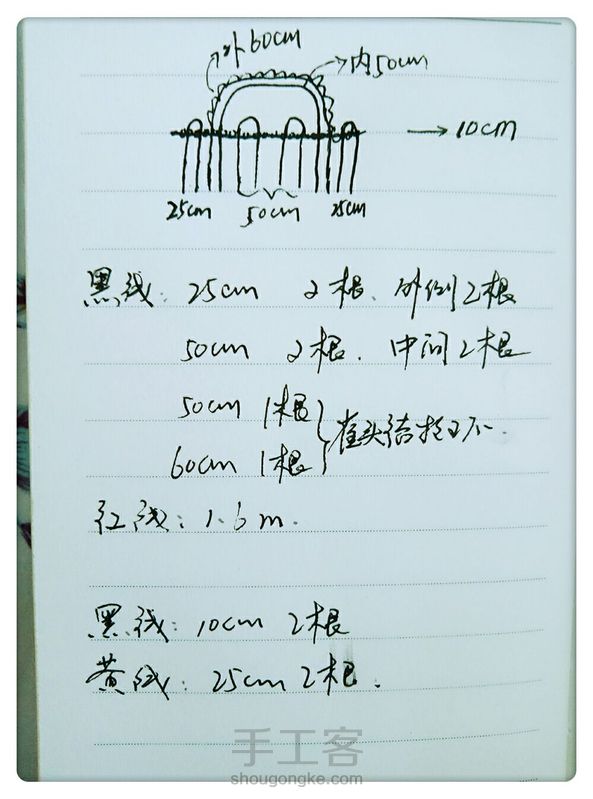 外60cm
内50cm
10cm
25cm 50cm 25cm
黑线: 25cm 2根、外侧2根
50cm 2根、中间2根
50cm 1根
雀头结
60cm 1根
红线: 1.6m.
黑线: 10cm 2根
黄线: 25cm 2根.
手工客
shougongke.com